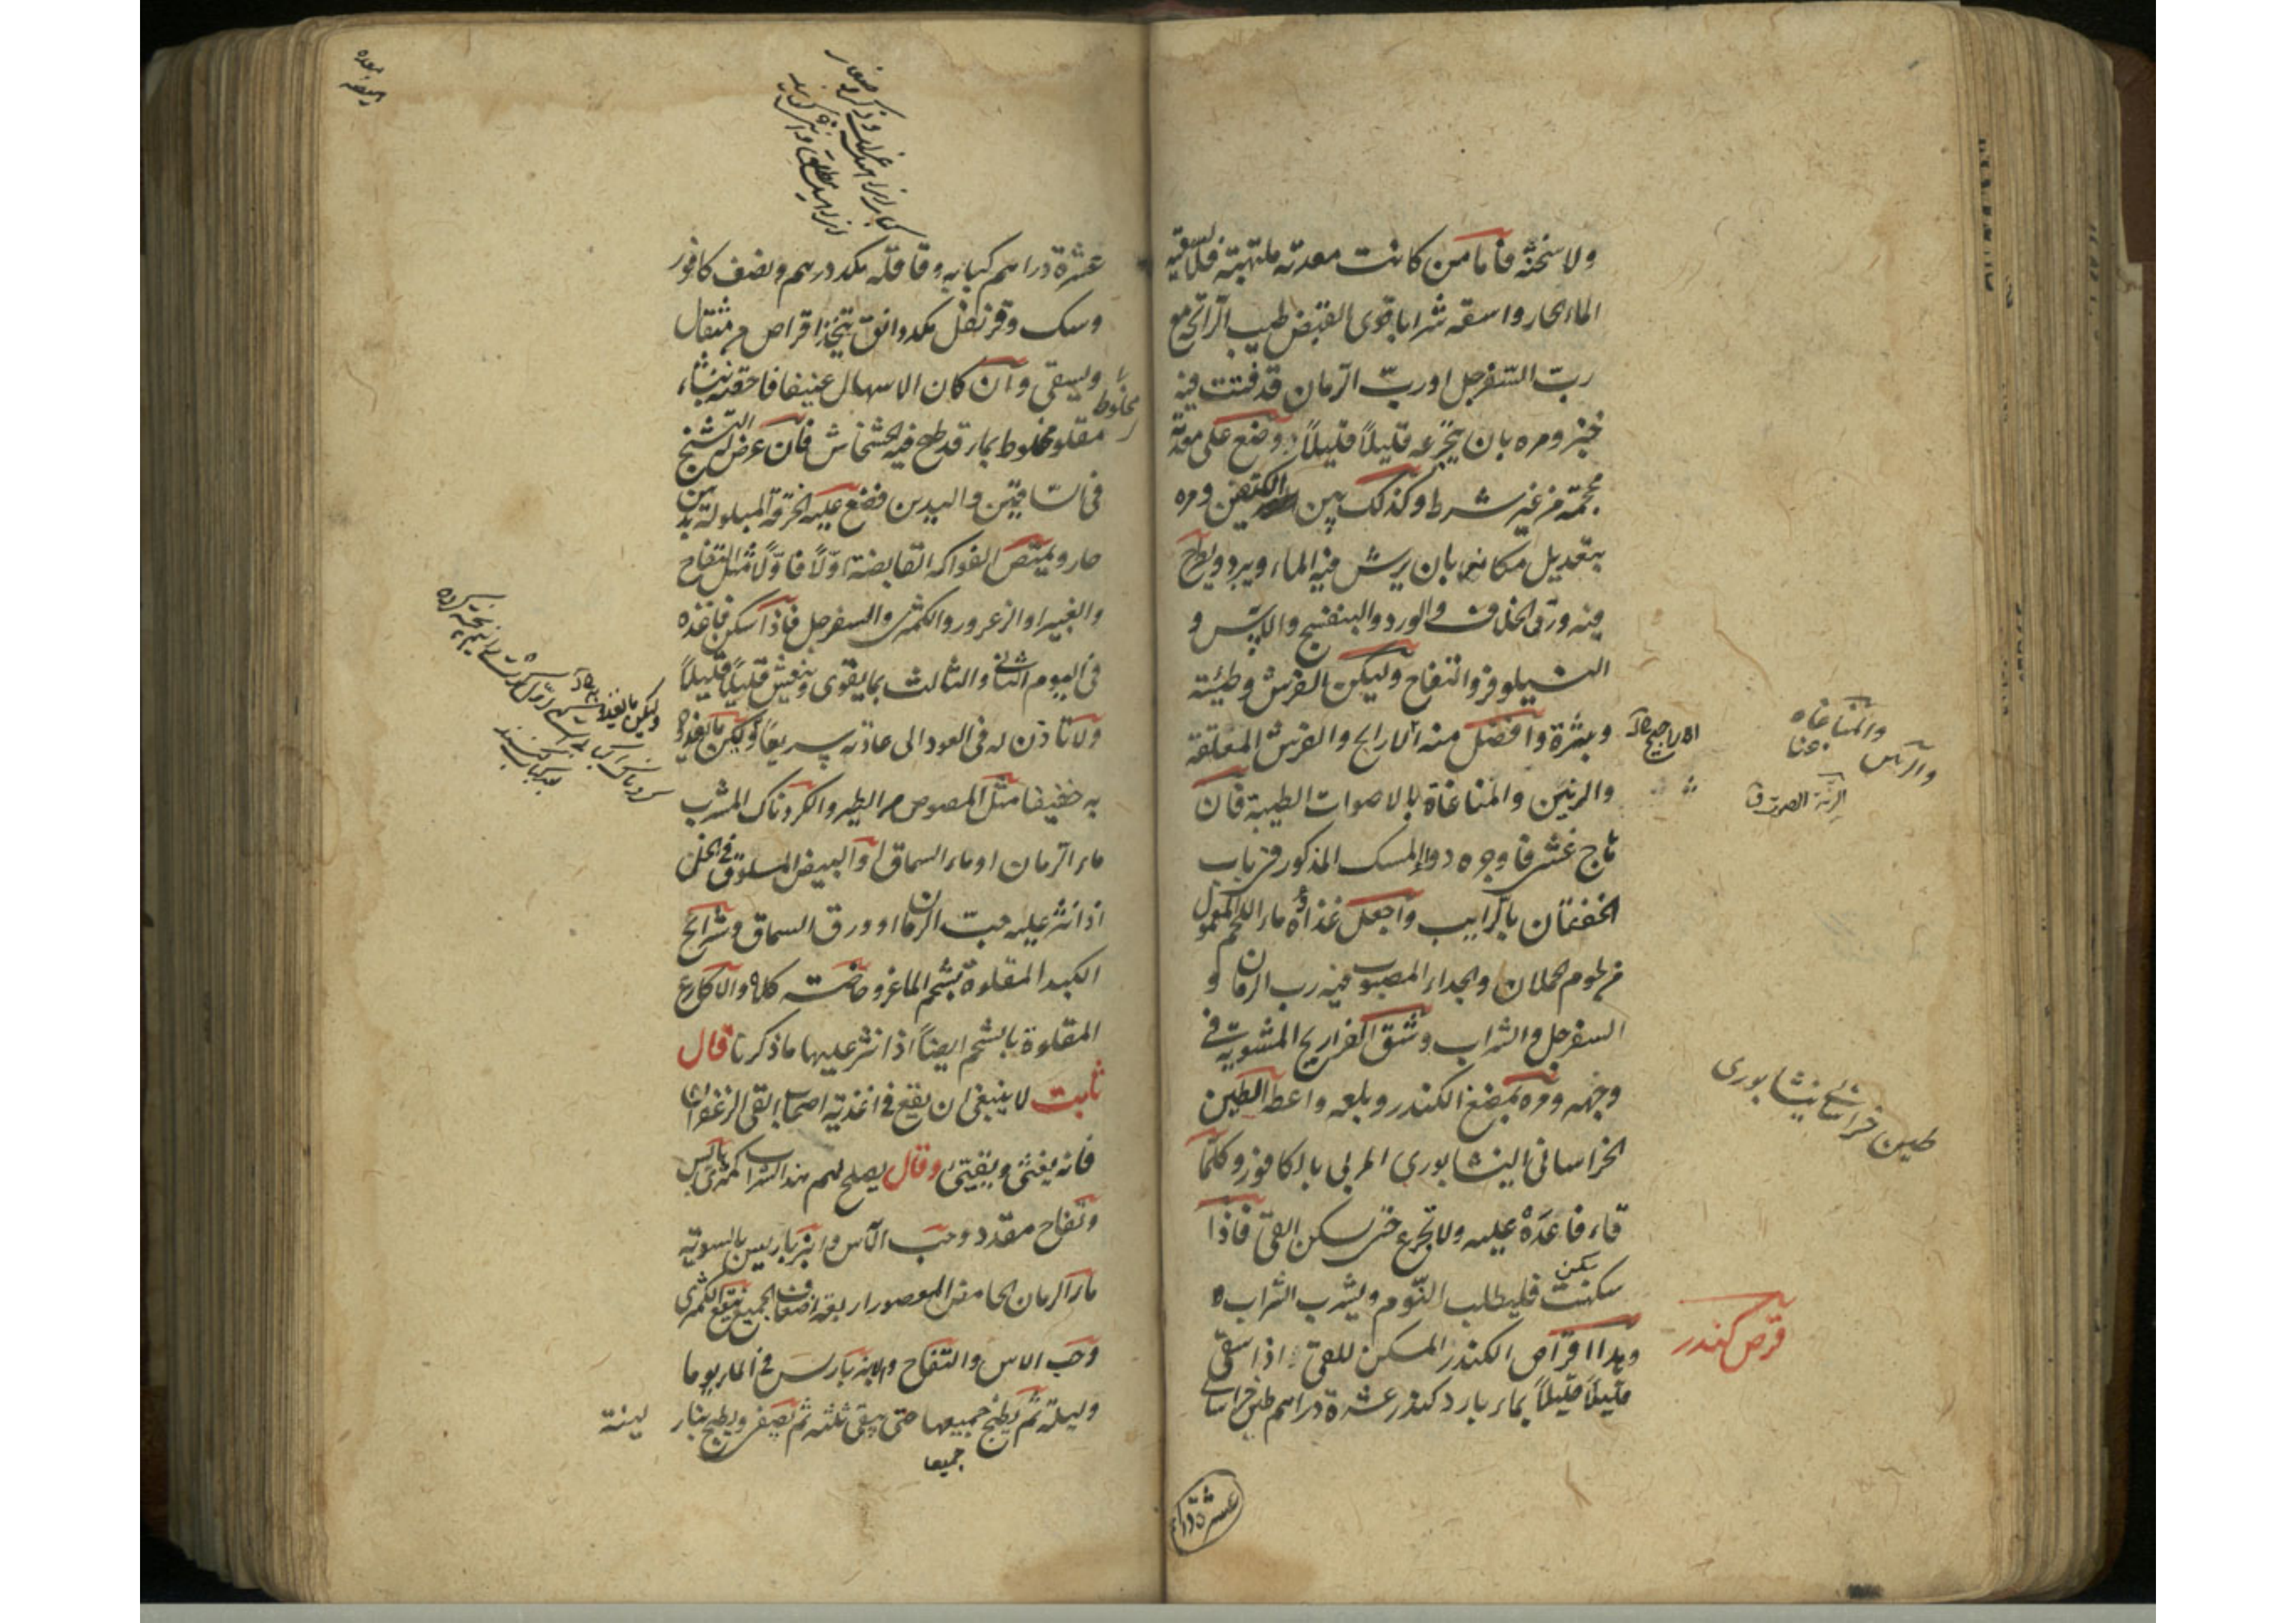 ولا سخنته فاما من كانت معدته ملتهبة فلا تسقيه
الماء الحار واسقه شرابا قوى القبض طيب الرائحة مع
رب السفرجل او رب الرمان قد فتت فيه
خبز ومره بان يتجرعه قليلاً قليلاً وضع على معدته
محجمة من غير شرط وكذلك بين الكتفين ومره
بتعديل مكانه بان يرش فيه الماء ويبرد ويطرح
فيه ورق الخلاف والورد والبنفسج والآس و
النيلوفر والتفاح وليكن الفرش وطيئة
وبثرة وافضل منه الاراجيح والفرش المعلقة
والرنين والمناغاة بالاصوات الطيبة فان
هاج غشى فاوجره دواء المسك المذكور فى باب
الخفقان بالراييب واجعل غذاؤه ماء اللحم المعمول
من لحوم الحملان والجداء المصبوب فيه رب الرمان و
السفرجل والشراب وشق الفراريج المشوية فى
وجهه ومره بمضغ الكندر وبلعه واعط الطين
الخراسانى النيشابورى المربى بالكافور وكلما
قاء فاعده عليه ولا تجزع حتى يسكن القئ فاذا
سكنت فليطلب النوم ويشرب الشراب
وهذا اقراص الكندر المسكن للقئ اذا سقى
قليلاً قليلاً بماء بارد كندر عشرة دراهم طين خراسانى
سكن
الاراجيح
والمناغاة
والرآس
الرنة الصوت ق
طين خراسانى نيشابورى
قرص كندر
عشرة درا
عشرة دراهم كبابه وقاقله مكد درهم ونصف كافور
وسك وقرنفل مكد دانق يتخذ اقراص من مثقال
ويسقى وان كان الاسهال عنيفا فاحقنه بنشاء
مقلو مخلوط بماء قد طبخ فيه الخشخاش فان عرض له التشنج
فى الساقين واليدين فضع عليه الخرقة المبلولة بدهن
حار ويمتص الفواكه القابضة اولاً فاولاً مثل التفاح
والغبيرا والزعرور والكمثرى والسفرجل فاذا سكن فاغذه
فى اليوم الثانى والثالث بما يقوى وينعش قليلاً قليلاً
ولا تاذن له فى العود الى عادته سريعاً وليكن ما يغذوا
به خفيفا مثل المصوص من الطير والكردناك المشرب
ماء الرمان او ماء السماق او البيض المسلوق فى الخل
اذا نثر عليه حب الرمان او ورق السماق وشرائح
الكبد المقلوة بشحم الماعز وخاصته كلاه والاكارع
المقلوة بالشحم ايضاً اذا نثر عليها ما ذكرنا قال
ثابت لا ينبغى ان يقع فى اغذية اصحاب القئ الزعفران
فانه يغثى ويقيئ وقال يصلح لهم هذا الشراب كمثرى يابس
وتفاح مقدد وحب الآس وانبرباريس بالسوية
ماء الرمان الحامض المعصور اربعة اضعاف الجميع ينقع الكمثرى
وحب الاس والتفاح والانبرباريس فى الماء يوما
وليلة ثم يطبخ جميعها حتى يبقى ثلثه ثم يصفى ويطبخ بنار لينة
جميعا
مخلوط